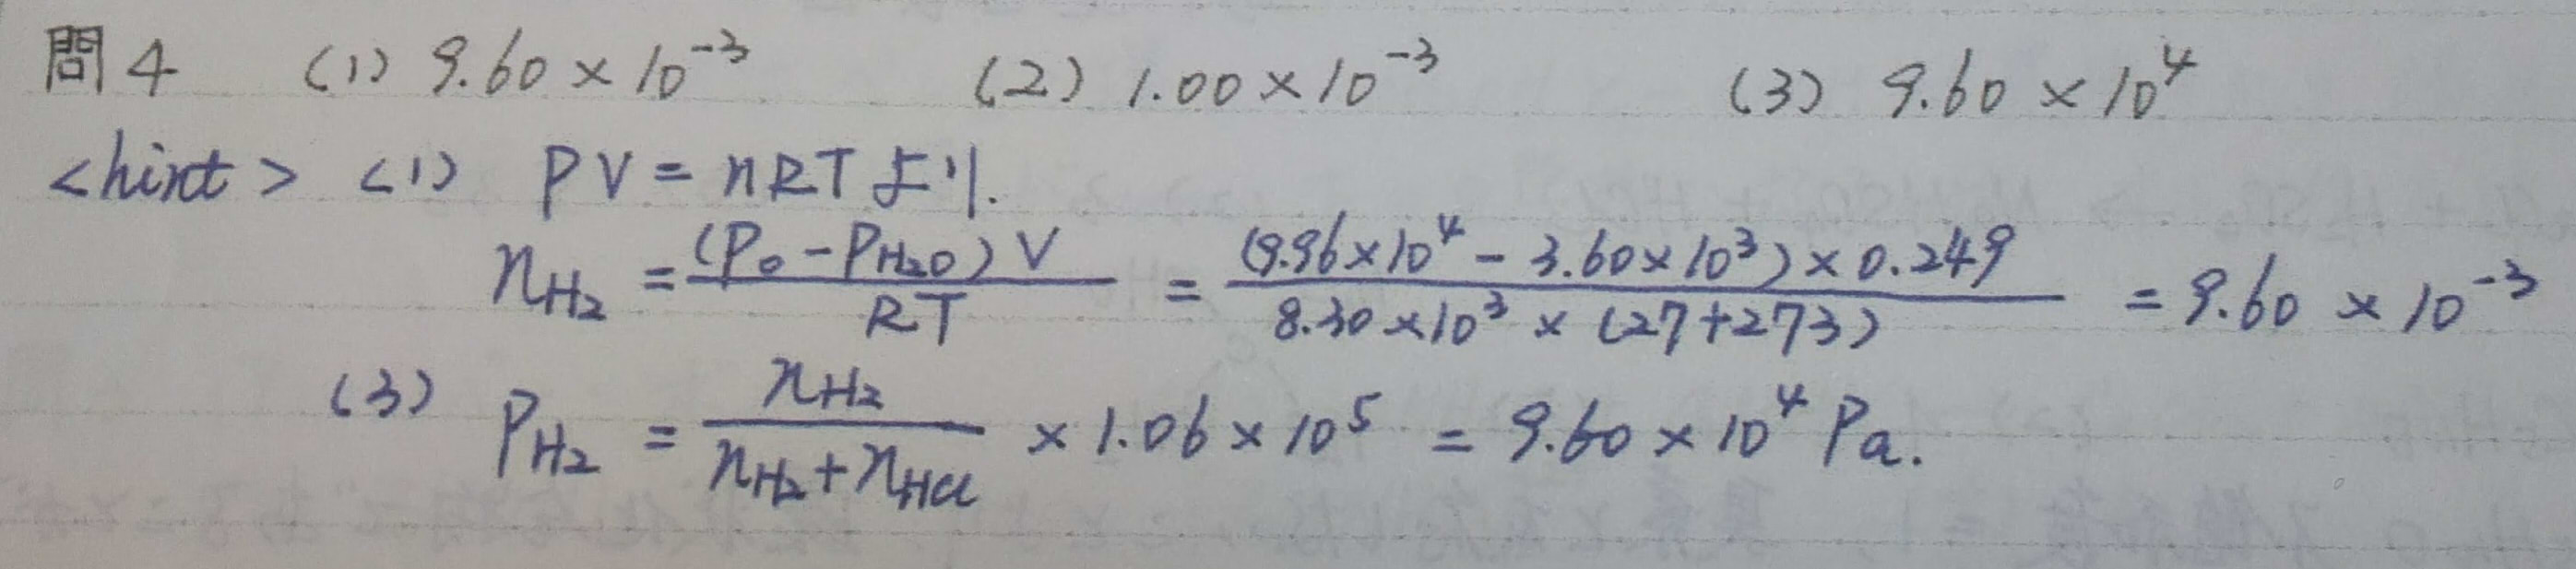 問4 (1) 9.60 × 10⁻³ (2) 1.00 × 10⁻³ (3) 9.60 × 10⁴
<hint> (1) PV = nRT より.
n_H₂ = (P₀ - P_H₂O) V / RT = (9.96×10⁴ - 3.60×10³) × 0.249 / 8.30×10³ × (27+273) = 9.60 × 10⁻³
(3) P_H₂ = n_H₂ / n_H₂ + n_HCl × 1.06 × 10⁵ = 9.60 × 10⁴ Pa.